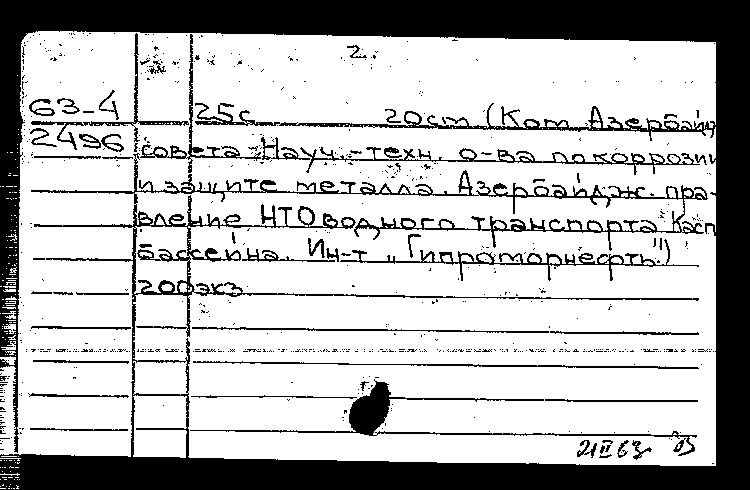 2.
63-4 25с 20см (Ком. Азербайдж
2496 совета Науч.-техн. о-ва по коррозии
и защите металла. Азербайдж. пра-
вление НТО водного транспорта Касп
бассейна. Ин-т „Гипроморнефть")
200экз
21 II 63